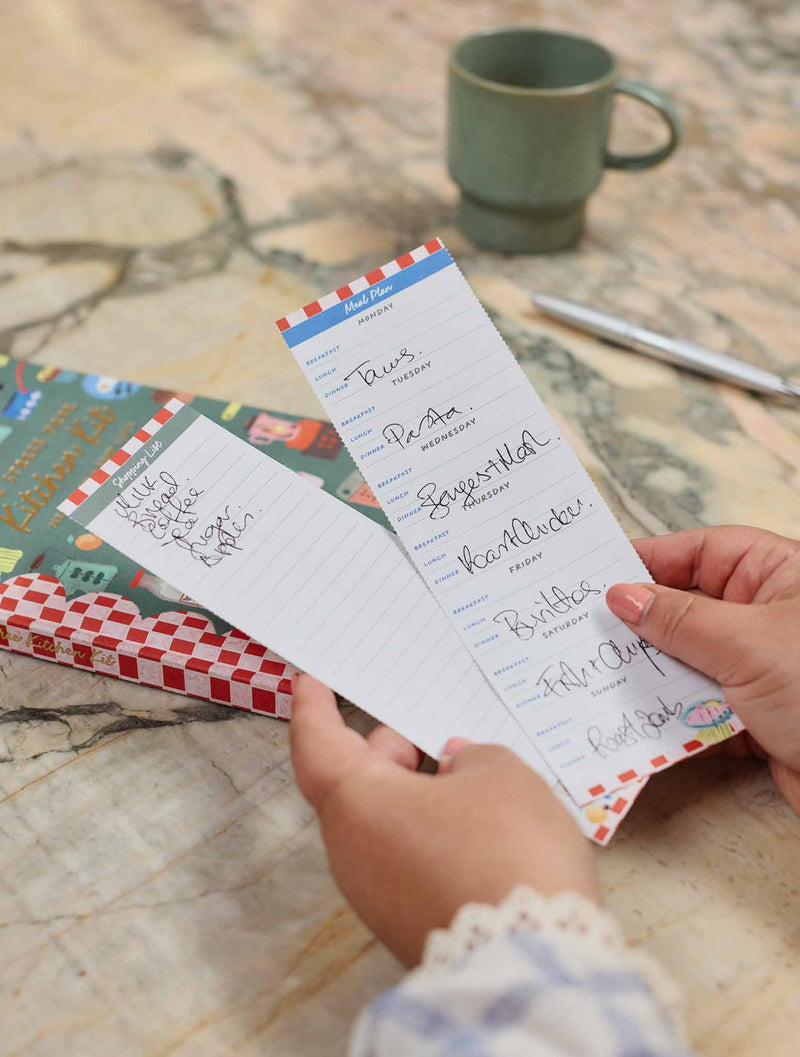 Meal Plan
MONDAY
BREAKFAST
LUNCH
DINNER Tacos.
TUESDAY
BREAKFAST
LUNCH
DINNER Pasta.
WEDNESDAY
BREAKFAST
LUNCH
DINNER Sausages + Mash.
THURSDAY
BREAKFAST
LUNCH
DINNER Roast Chicken.
FRIDAY
BREAKFAST
LUNCH
DINNER Burritos.
SATURDAY
BREAKFAST
LUNCH
DINNER Fish + Chips.
SUNDAY
BREAKFAST
LUNCH
DINNER Roast Lamb
Shopping List
Milk
Bread
Coffee
Sugar
Apples.
STRESS FREE
Kitchen Kit
Free Kitchen Kit